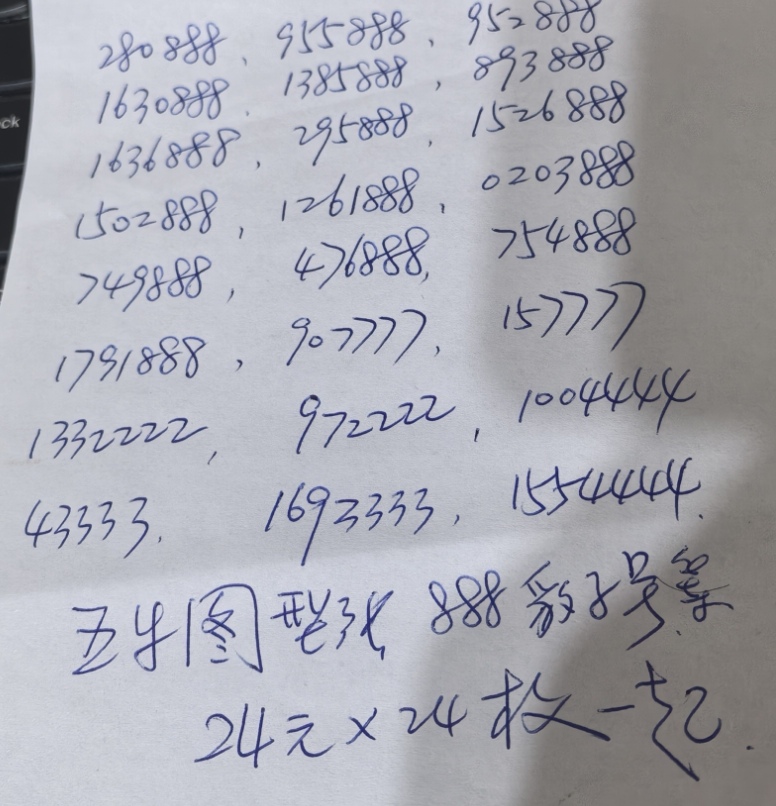 ck
280888、955888、952888
1630888、1385888、893888
1636888、295888、1526888
1502888、1261888、0203888
749888、476888、754888
1791888、907777、157777
1332222、972222、1004444
43333、1693333、1554444.
五牛图型张 888豹子号
24元×24枚一起.